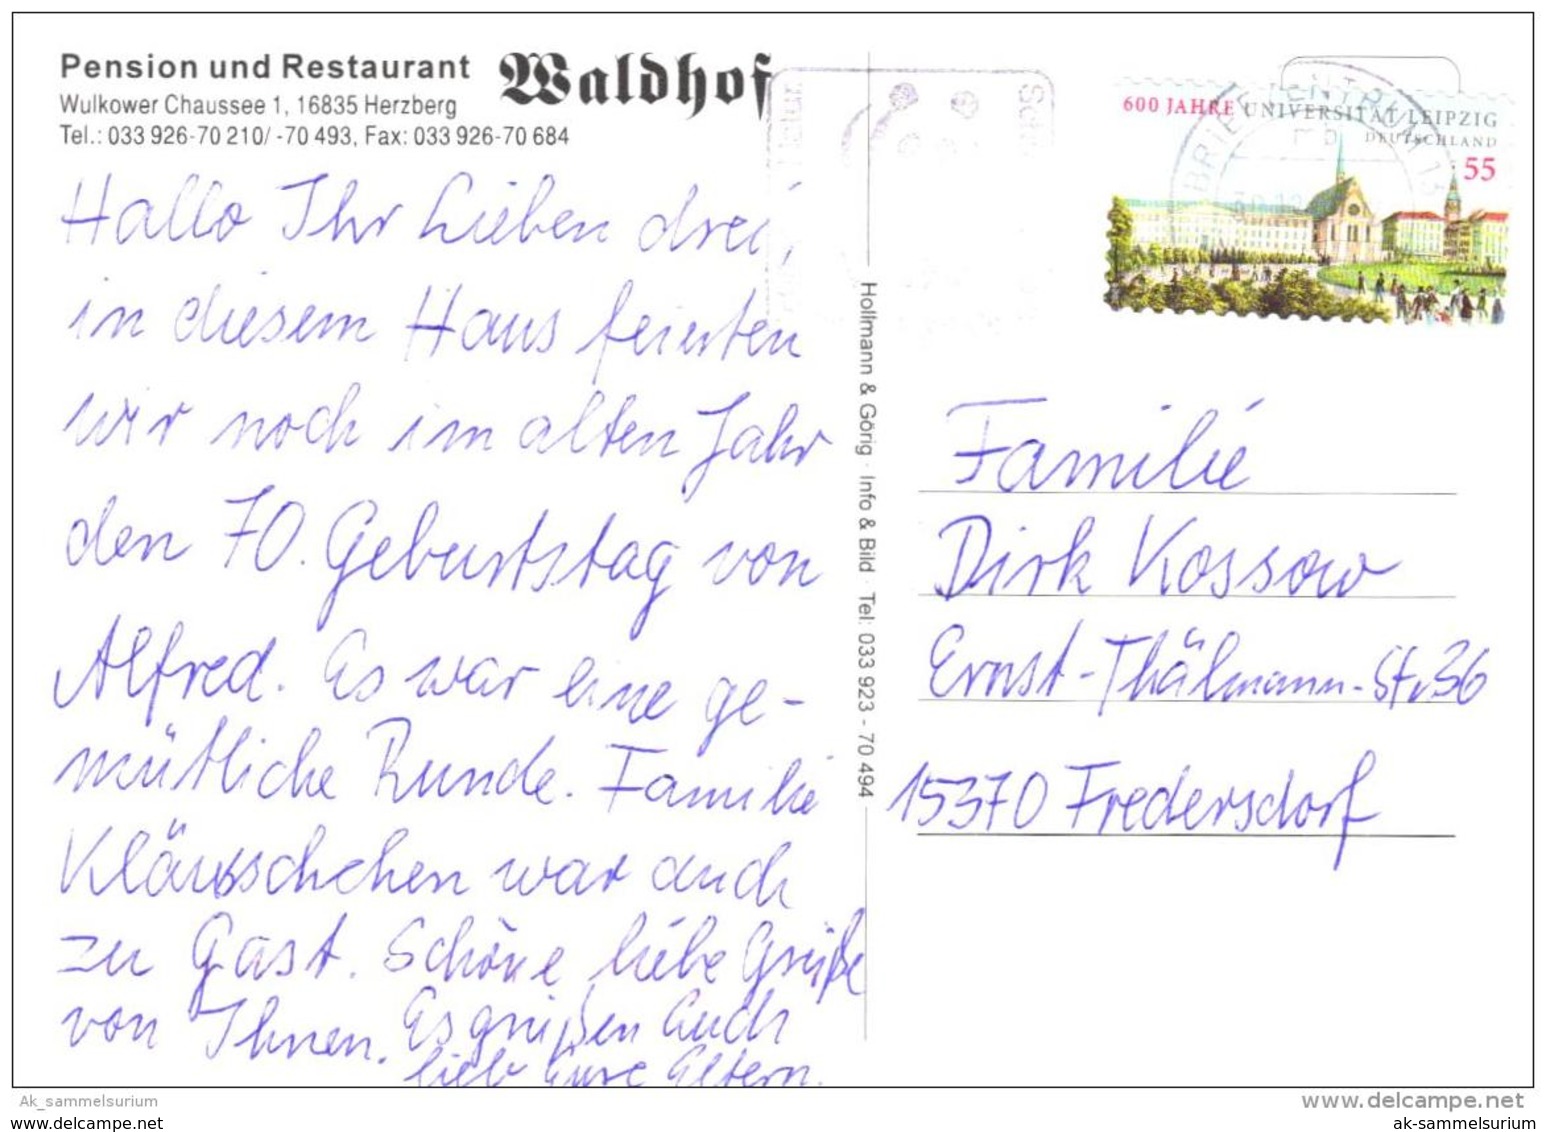 Pension und Restaurant Waldhof
Wulkower Chaussee 1, 16835 Herzberg
Tel.: 033 926-70 210/ -70 493, Fax: 033 926-70 684
Hallo Ihr Lieben drei,
in diesem Haus feierten
wir noch im alten Jahr
den 70. Geburtstag von
Alfred. Es war eine ge-
mütliche Runde. Familie
Kläuschchen war auch
zu Gast. Schöne liebe Grüße
von Ihnen. Es grüßen Euch
lieb Eure Eltern.
Hollmann & Görig · Info & Bild · Tel: 033 923 - 70 494
600 JAHRE UNIVERSITÄT LEIPZIG
DEUTSCHLAND
55
BRIEFZENTRUM 15
mb
Familie
Dirk Kossow
Ernst-Thälmann-Str 36
15370 Fredersdorf
Ak_sammelsurium
www.delcampe.net
www.ak-sammelsurium.de
ak-sammelsurium